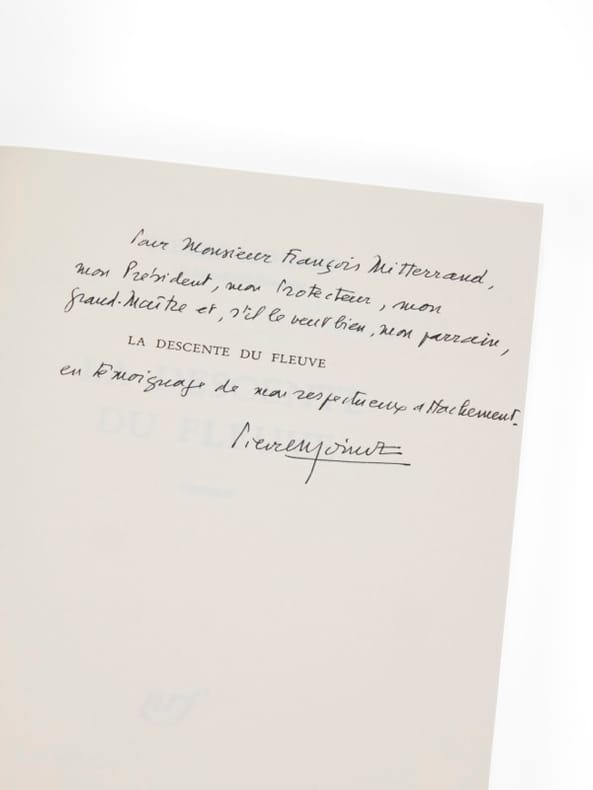 Pour Monsieur François Mitterrand,
mon Président, mon Protecteur, mon
Grand-Maître et, s'il le veut bien, mon parrain,
LA DESCENTE DU FLEUVE
en témoignage de mon respectueux attachement.
Pierre Moinot
LA DESCENTE
DU FLEUVE
nrf